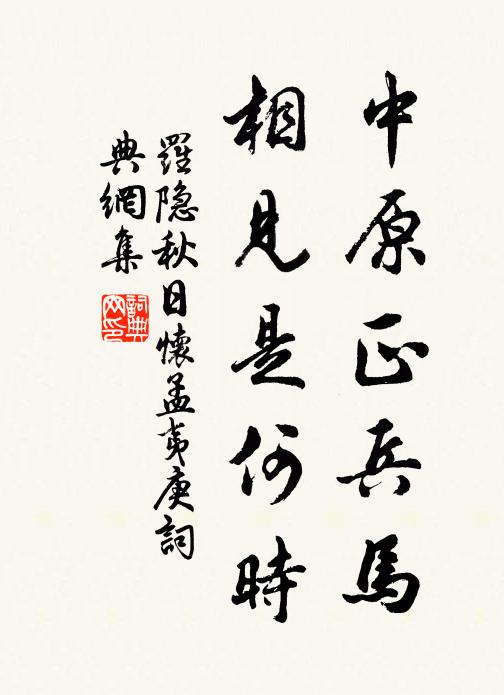 中原正兵馬
相見是何時
羅隐秋日懷孟夷庚詞
典網集
詞典网印